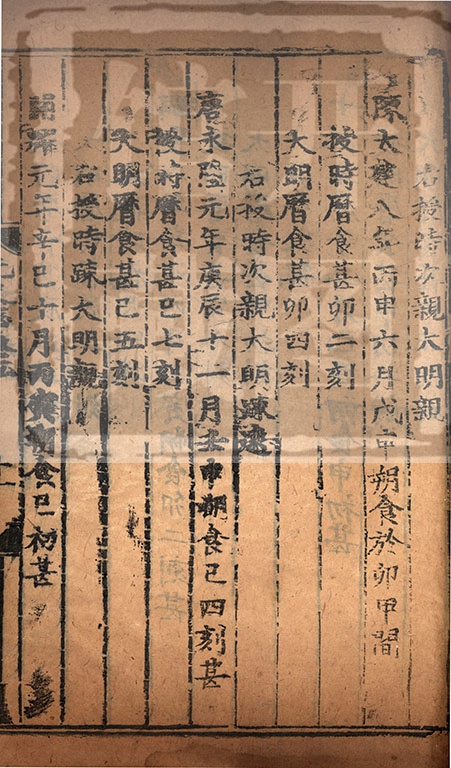 右授時次親大明親
陳太建八年丙申六月戊申朔食於卯甲間
授時曆食甚卯二刻
大明曆食甚卯四刻
右授時次親大明疎遠
唐永隆元年庚辰十一月壬申朔食巳四刻甚
授時曆食甚巳七刻
大明曆食甚巳五刻
右授時疎大明親
開耀元年辛巳十月丙寅朔食巳初甚